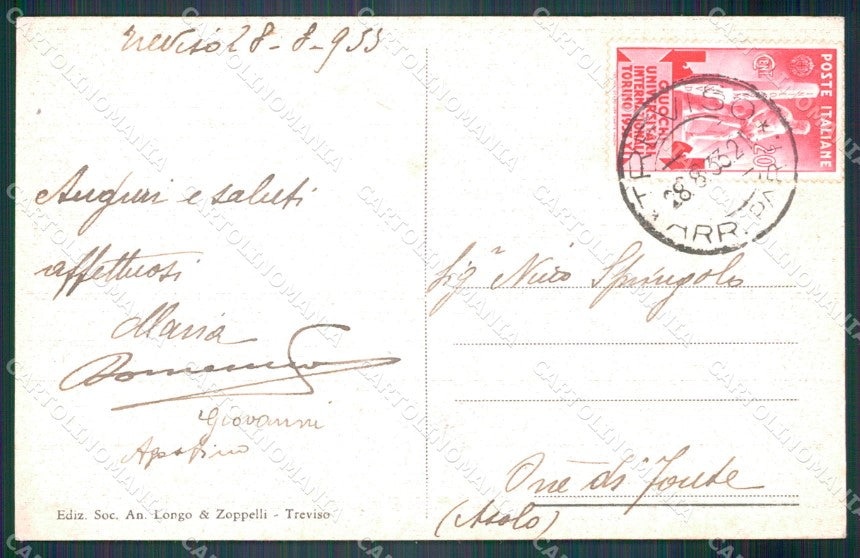 Treviso 28-8-933
Auguri e saluti
affettuosi
Maria
Domenico
Giovanni
Agostino
Ediz. Soc. An. Longo & Zoppelli - Treviso
POSTE ITALIANE
GIUOCHI
UNIVERSITARI
INTERNAZIONALI
TORINO
20
TREVISO
28.8.33.21
ARR. PAR
Sigʳ Nino Springolo
Onè di Fonte
(Asolo)
CARTOLINOMANIA